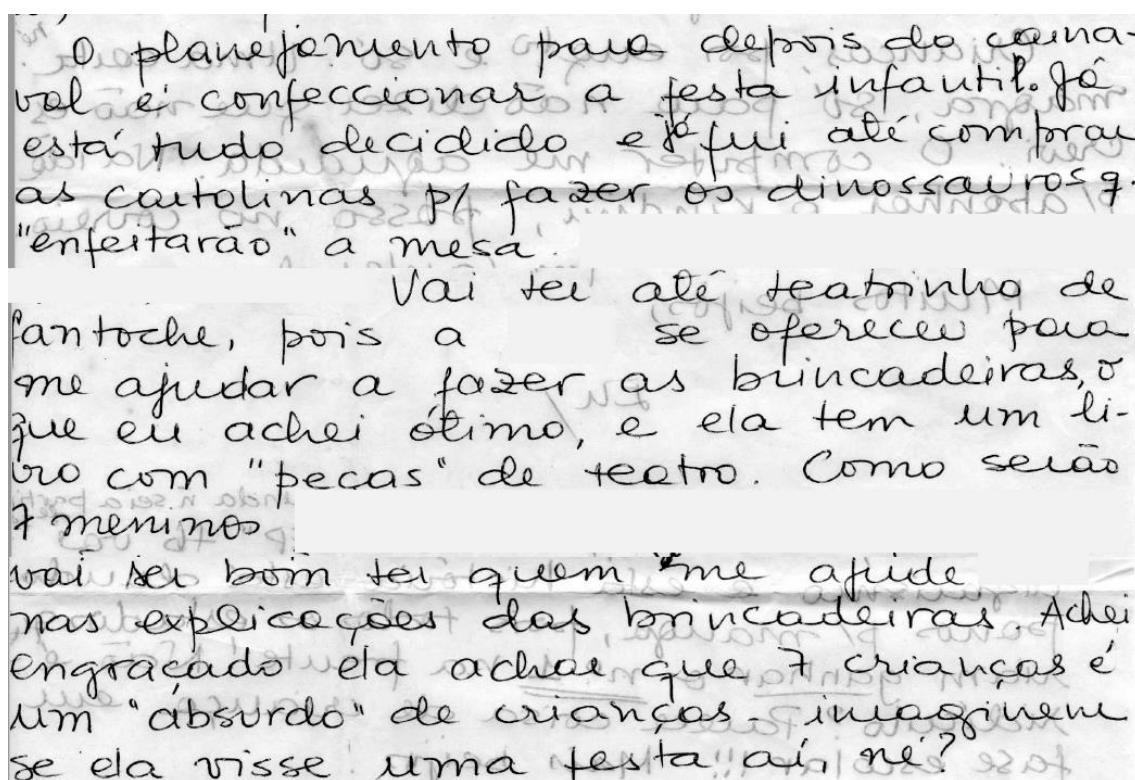 O planejamento para depois do carna-
val é confeccionar a festa infantil. Já
está tudo decidido e já fui até comprar
as cartolinas p/ fazer os dinossauros q.
"enfeitarão" a mesa.
Vai ter até teatrinho de
fantoche, pois a se ofereceu para
me ajudar a fazer as brincadeiras, o
que eu achei ótimo, e ela tem um li-
vro com "peças" de teatro. Como serão
7 meninos
vai ser bom ter quem me ajude
nas explicações das brincadeiras Achei
engraçado ela achar que 7 crianças é
um "absurdo" de crianças - imaginem
se ela visse uma festa aí, né?